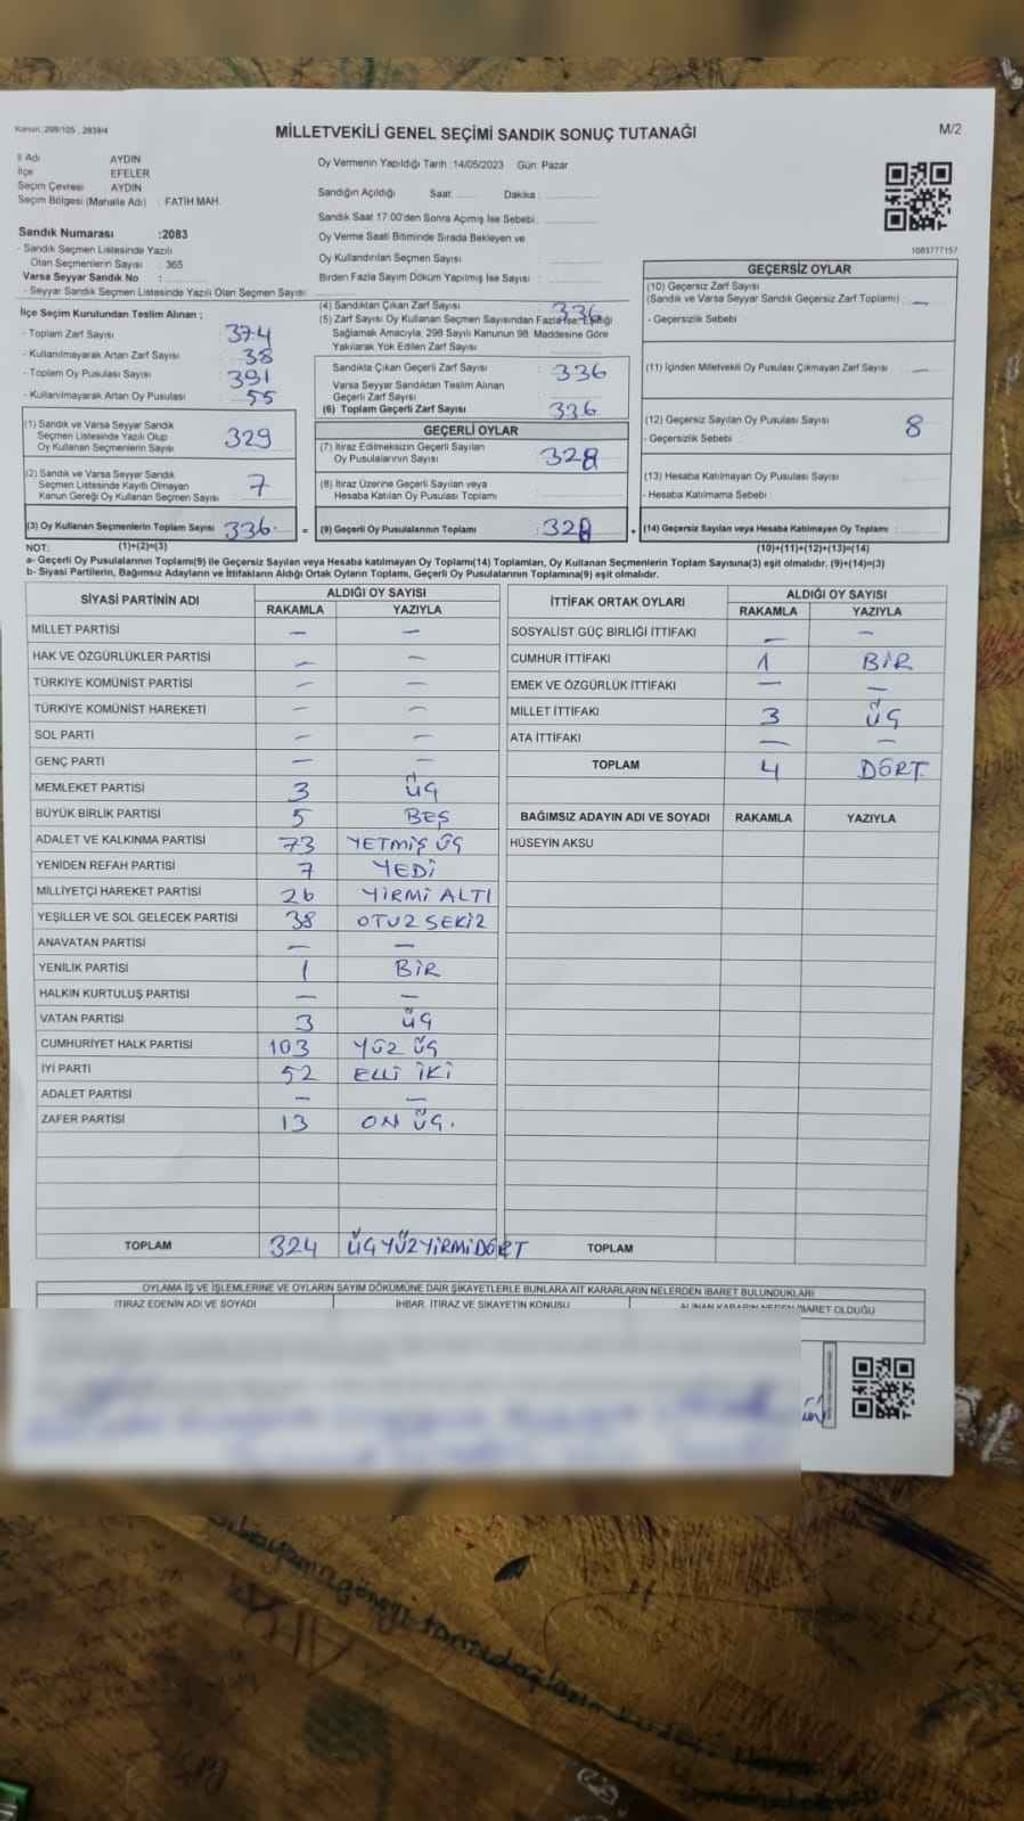 Kanun: 298/105 , 2839/4
MİLLETVEKİLİ GENEL SEÇİMİ SANDIK SONUÇ TUTANAĞI
M/2
İl Adı AYDIN
İlçe EFELER
Seçim Çevresi AYDIN
Seçim Bölgesi (Mahalle Adı) : FATİH MAH.
Sandık Numarası :2083
- Sandık Seçmen Listesinde Yazılı
Olan Seçmenlerin Sayısı : 365
Varsa Seyyar Sandık No :
- Seyyar Sandık Seçmen Listesinde Yazılı Olan Seçmen Sayısı
Oy Vermenin Yapıldığı Tarih :14/05/2023 Gün: Pazar
Sandığın Açıldığı Saat: Dakika :
Sandık Saat 17:00'den Sonra Açılmış İse Sebebi :
Oy Verme Saati Bitiminde Sırada Bekleyen ve
Oy Kullandırılan Seçmen Sayısı
Birden Fazla Sayım Döküm Yapılmış İse Sayısı :
1083777157
İlçe Seçim Kurulundan Teslim Alınan :
- Toplam Zarf Sayısı 374
- Kullanılmayarak Artan Zarf Sayısı 38
- Toplam Oy Pusulası Sayısı 391
- Kullanılmayarak Artan Oy Pusulası 55
(1) Sandık ve Varsa Seyyar Sandık
Seçmen Listesinde Yazılı Olup
Oy Kullanan Seçmenlerin Sayısı 329
(2) Sandık ve Varsa Seyyar Sandık
Seçmen Listesinde Kayıtlı Olmayan
Kanun Gereği Oy Kullanan Seçmen Sayısı 7
(3) Oy Kullanan Seçmenlerin Toplam Sayısı 336
(1)+(2)=(3)
(4) Sandıktan Çıkan Zarf Sayısı 336
(5) Zarf Sayısı Oy Kullanan Seçmen Sayısından Fazla İse, Eşitliği
Sağlamak Amacıyla, 298 Sayılı Kanunun 98. Maddesine Göre
Yakılarak Yok Edilen Zarf Sayısı
Sandıkta Çıkan Geçerli Zarf Sayısı 336
Varsa Seyyar Sandıktan Teslim Alınan
Geçerli Zarf Sayısı
(6) Toplam Geçerli Zarf Sayısı 336
GEÇERLİ OYLAR
(7) İtiraz Edilmeksizin Geçerli Sayılan
Oy Pusulalarının Sayısı 328
(8) İtiraz Üzerine Geçerli Sayılan veya
Hesaba Katılan Oy Pusulası Toplamı
= (9) Geçerli Oy Pusulalarının Toplamı 328 +
GEÇERSİZ OYLAR
(10) Geçersiz Zarf Sayısı
(Sandık ve Varsa Seyyar Sandık Geçersiz Zarf Toplamı) —
- Geçersizlik Sebebi
(11) İçinden Milletvekili Oy Pusulası Çıkmayan Zarf Sayısı —
(12) Geçersiz Sayılan Oy Pusulası Sayısı 8
- Geçersizlik Sebebi
(13) Hesaba Katılmayan Oy Pusulası Sayısı
- Hesaba Katılmama Sebebi
(14) Geçersiz Sayılan veya Hesaba Katılmayan Oy Toplamı
(10)+(11)+(12)+(13)=(14)
NOT:
a- Geçerli Oy Pusulalarının Toplamı(9) ile Geçersiz Sayılan veya Hesaba katılmayan Oy Toplamı(14) Toplamları, Oy Kullanan Seçmenlerin Toplam Sayısına(3) eşit olmalıdır. (9)+(14)=(3)
b- Siyasi Partilerin, Bağımsız Adayların ve İttifakların Aldığı Ortak Oyların Toplamı, Geçerli Oy Pusulalarının Toplamına(9) eşit olmalıdır.
SİYASİ PARTİNİN ADI ALDIĞI OY SAYISI
RAKAMLA YAZIYLA
MİLLET PARTİSİ — —
HAK VE ÖZGÜRLÜKLER PARTİSİ — —
TÜRKİYE KOMÜNİST PARTİSİ — —
TÜRKİYE KOMÜNİST HAREKETİ — —
SOL PARTİ — —
GENÇ PARTİ — —
MEMLEKET PARTİSİ 3 ÜÇ
BÜYÜK BİRLİK PARTİSİ 5 BEŞ
ADALET VE KALKINMA PARTİSİ 73 YETMİŞ ÜÇ
YENİDEN REFAH PARTİSİ 7 YEDİ
MİLLİYETÇİ HAREKET PARTİSİ 26 YİRMİ ALTI
YEŞİLLER VE SOL GELECEK PARTİSİ 38 OTUZ SEKİZ
ANAVATAN PARTİSİ — —
YENİLİK PARTİSİ 1 BİR
HALKIN KURTULUŞ PARTİSİ — —
VATAN PARTİSİ 3 ÜÇ
CUMHURİYET HALK PARTİSİ 103 YÜZ ÜÇ
İYİ PARTİ 52 ELLİ İKİ
ADALET PARTİSİ — —
ZAFER PARTİSİ 13 ON ÜÇ.
TOPLAM 324 ÜÇ YÜZ YİRMİ DÖRT
İTTİFAK ORTAK OYLARI ALDIĞI OY SAYISI
RAKAMLA YAZIYLA
SOSYALİST GÜÇ BİRLİĞİ İTTİFAKI — —
CUMHUR İTTİFAKI 1 BİR
EMEK VE ÖZGÜRLÜK İTTİFAKI — —
MİLLET İTTİFAKI 3 ÜÇ
ATA İTTİFAKI — —
TOPLAM 4 DÖRT
BAĞIMSIZ ADAYIN ADI VE SOYADI RAKAMLA YAZIYLA
HÜSEYİN AKSU
TOPLAM
OYLAMA İŞ VE İŞLEMLERİNE VE OYLARIN SAYIM DÖKÜMÜNE DAİR ŞİKAYETLERLE BUNLARA AİT KARARLARIN NELERDEN İBARET BULUNDUKLARI
İTİRAZ EDENİN ADI VE SOYADI İHBAR, İTİRAZ VE ŞİKAYETİN KONUSU ALINAN KARARIN NEDEN İBARET OLDUĞU